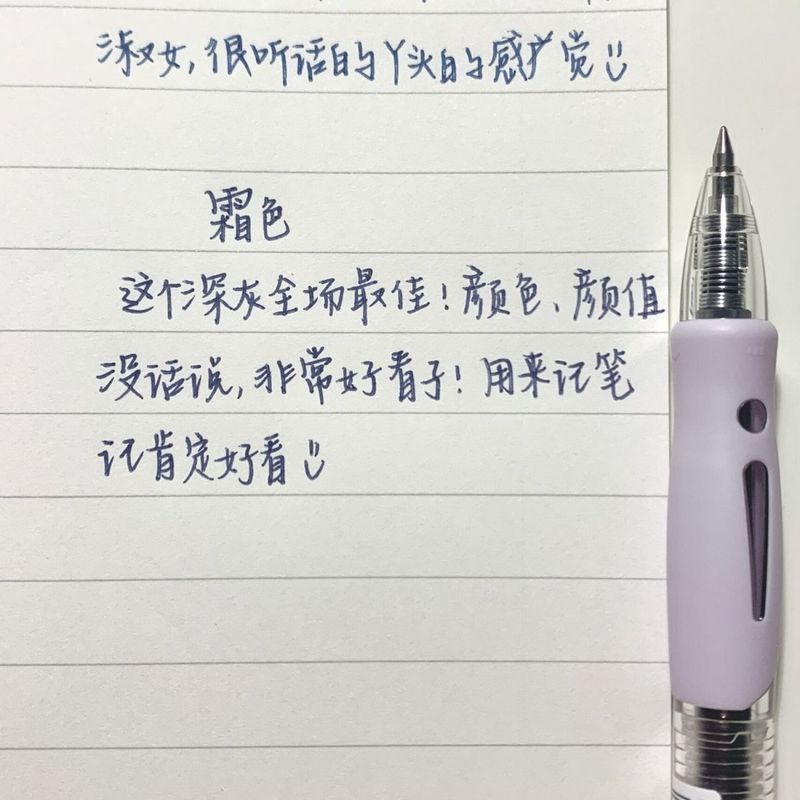 淑女,很听话的丫头的感觉
霜色
这个深灰全场最佳!颜色、颜值
没话说,非常好看子!用来记笔
记肯定好看